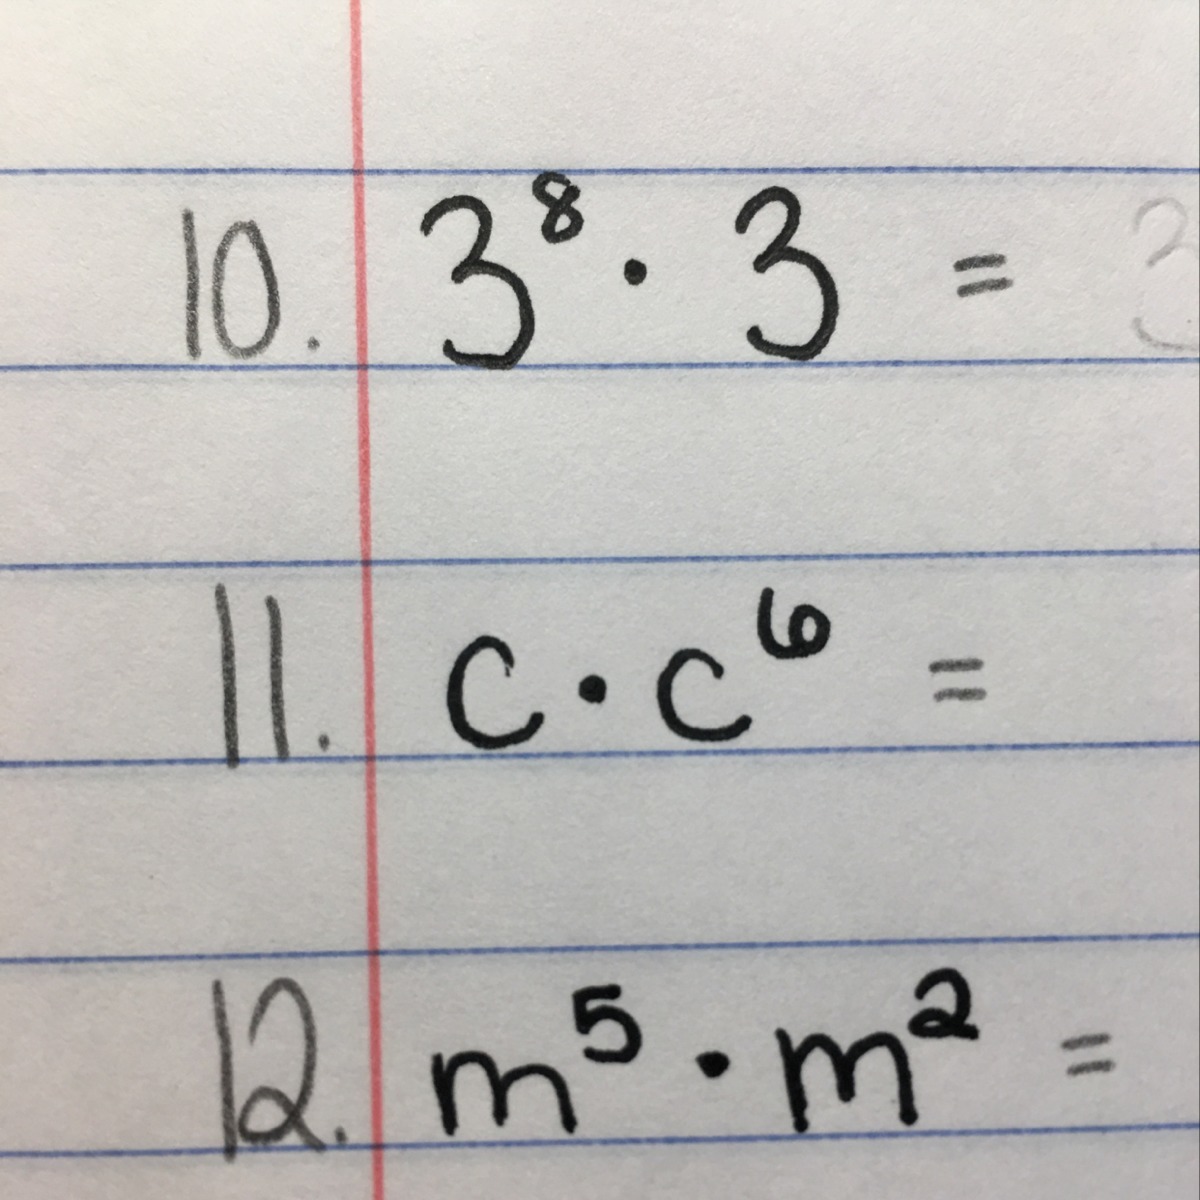 10. 3⁸ · 3 = 3
11. c · c⁶ =
12. m⁵ · m² =